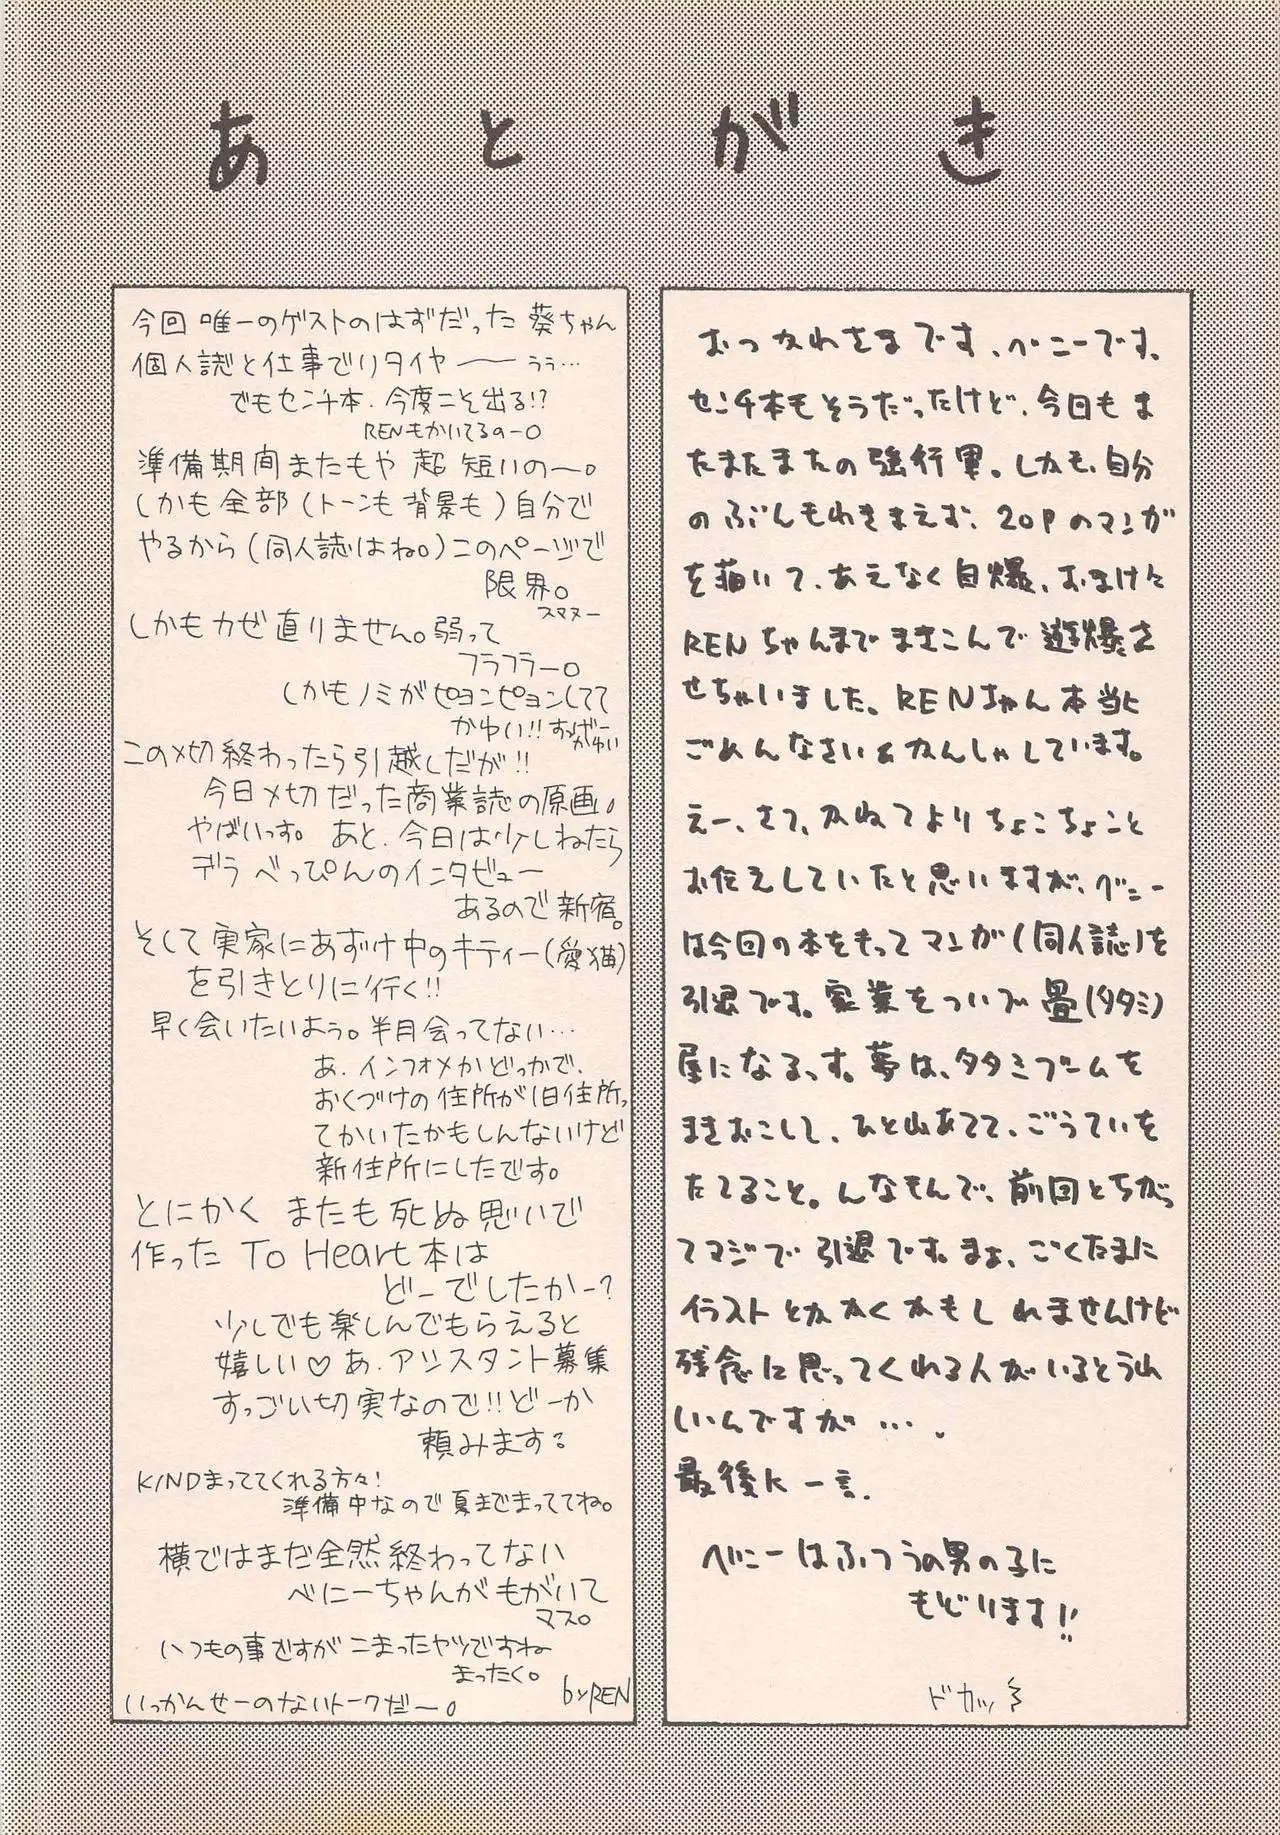 あとがき
今回唯一のゲストのはずだった葵ちゃん
個人誌と仕事でリタイヤ―― うぅ…
でもセンチ本、今度こそ出る!?
RENもかいてるのー。
準備期間またもや超短いの〜。
しかも全部(トーンも背景も)自分で
やるから(同人誌はね。)このページで
限界。
スマヌー
しかもカゼ直りません。弱って
フラフラー。
しかもノミがピョンピョンしてて
かゆい!! すんげーかゆい
この〆切終わったら引越しだが!!
今日〆切だった商業誌の原画。
やばいっす。あと、今日は少しねたら
デラべっぴんのインタビュー
あるので新宿。
そして実家にあずけ中のキティー(愛猫)
を引きとりに行く!!
早く会いたいよう。半月会ってない…
あ、インフォメかどっかで、
おくづけの住所が旧住所っ
てかいたかもしんないけど
新住所にしたです。
とにかく またも死ぬ思いで
作った To Heart本は
どーでしたかー?
少しでも楽しんでもらえると
嬉しい♡ あ、アシスタント募集
すっごい切実なので!!どーか
頼みます。
KINDまっててくれる方々!
準備中なので夏までまっててね。
横ではまだ全然終わってない
べにーちゃんがもがいて
マス。
いつもの事ですがこまったヤツですね
まったく。
いっかんせーのないトークだ〜。
by REN
おつかれさまです、べニーです。
センチ本もそうだったけど、今日もま
たまたまたの強行軍。しかも、自分
のぶんもわきまえず、20Pのマンガ
を描いて、あえなく自爆、おまけに
RENちゃんまでまきこんで遊爆さ
せちゃいました。RENちゃん本当に
ごめんなさい&かんしゃしています。
えー、さて、かねてよりちょこちょこと
お伝えしていたと思いますが、べニー
は今回の本をもってマンガ(同人誌)を
引退です。家業をついで畳(タタミ)
屋になるっす。夢は、タタミブームを
まきおこして、ひと山あてて、ごうていを
たてること。んなもんで、前回とちがっ
てマジで引退です。まぁ、ごくたまに
イラストとかかくかもしれませんけど
残念に思ってくれる人がいるとうれ
しいんですが…。
最後に一言。
べニーはふつうの男の子に
もどります!!
ドカッ